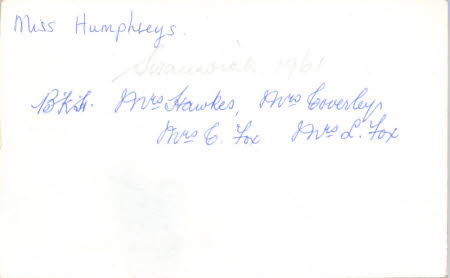 Miss Humphreys.
Swanwick 1961
B.K.H. Mrs Hawkes, Mrs Coverley
Mrs C. Fox Mrs L. Fox